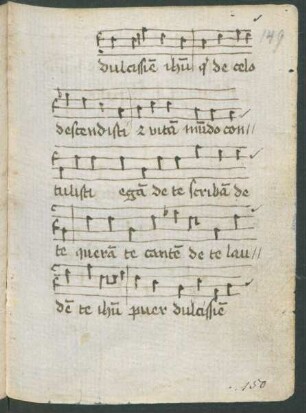 149
dulcissiē ihū q̄ de celo
descendisti ⁊ vitā mūdo con//
tulisti egā de te scribā de
te querā te cantē de te lau//
dē te ihū puer dulcissiē
150